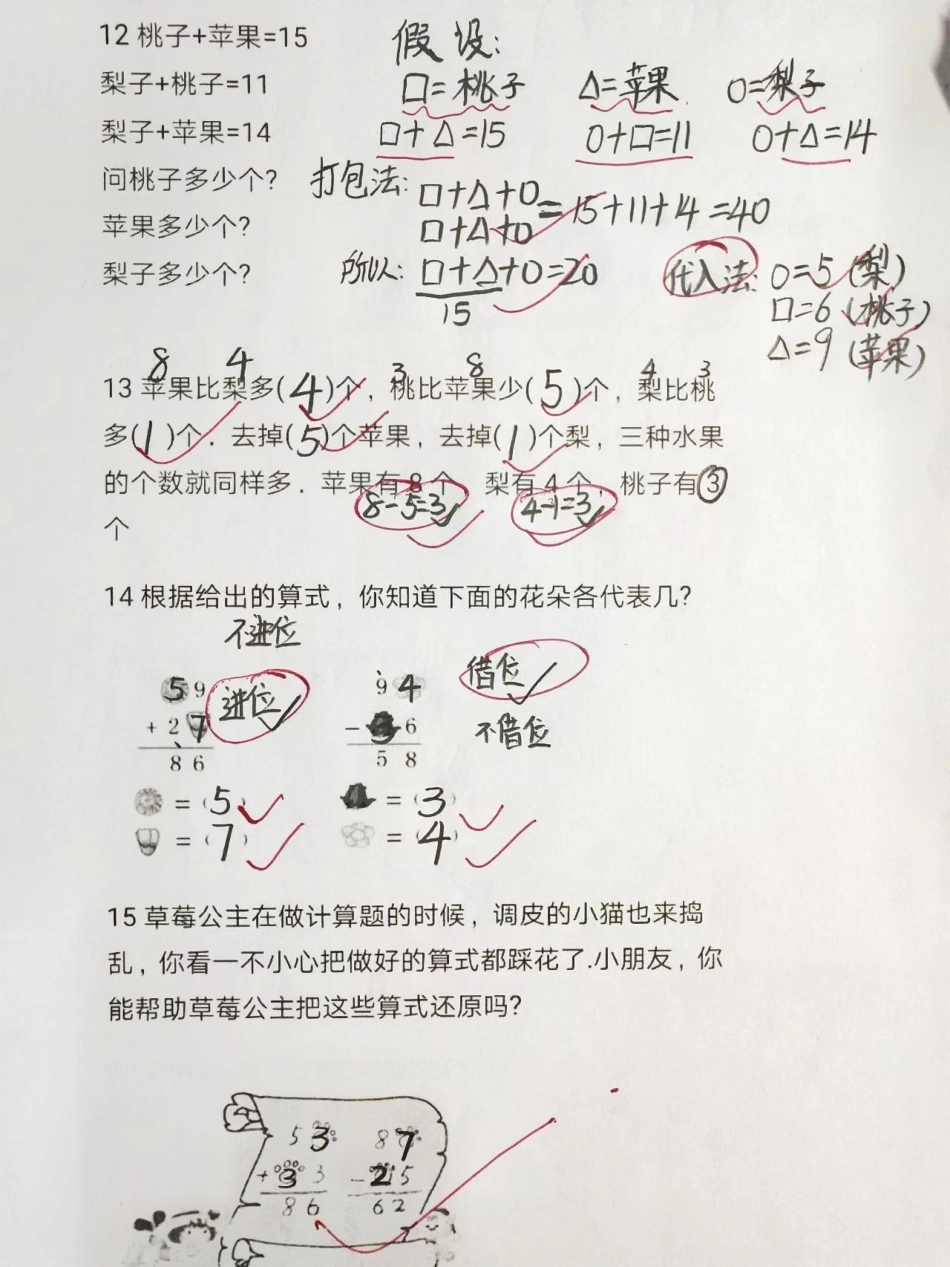 12 桃子+苹果=15 假设:
梨子+桃子=11 □=桃子 △=苹果 O=梨子
梨子+苹果=14 □+△=15 O+□=11 O+△=14
问桃子多少个? 打包法: □+△+O
苹果多少个? □+△+O =15+11+14=40
梨子多少个? 所以: □+△+O=20 代入法: O=5(梨)
15 □=6(桃子)
△=9(苹果)
8 4 3 8 4 3
13 苹果比梨多(4)个，桃比苹果少(5)个，梨比桃
多(1)个．去掉(5)个苹果，去掉(1)个梨，三种水果
的个数就同样多．苹果有8个，梨有4个，桃子有③
8-5=3 4-1=3
个
14 根据给出的算式，你知道下面的花朵各代表几?
不进位
59 进位 94 借位
+27 -36 不借位
86 58
=(5) =(3)
=(7) =(4)
15 草莓公主在做计算题的时候，调皮的小猫也来捣
乱，你看一不小心把做好的算式都踩花了.小朋友，你
能帮助草莓公主把这些算式还原吗?
53 87
+33 -25
86 62